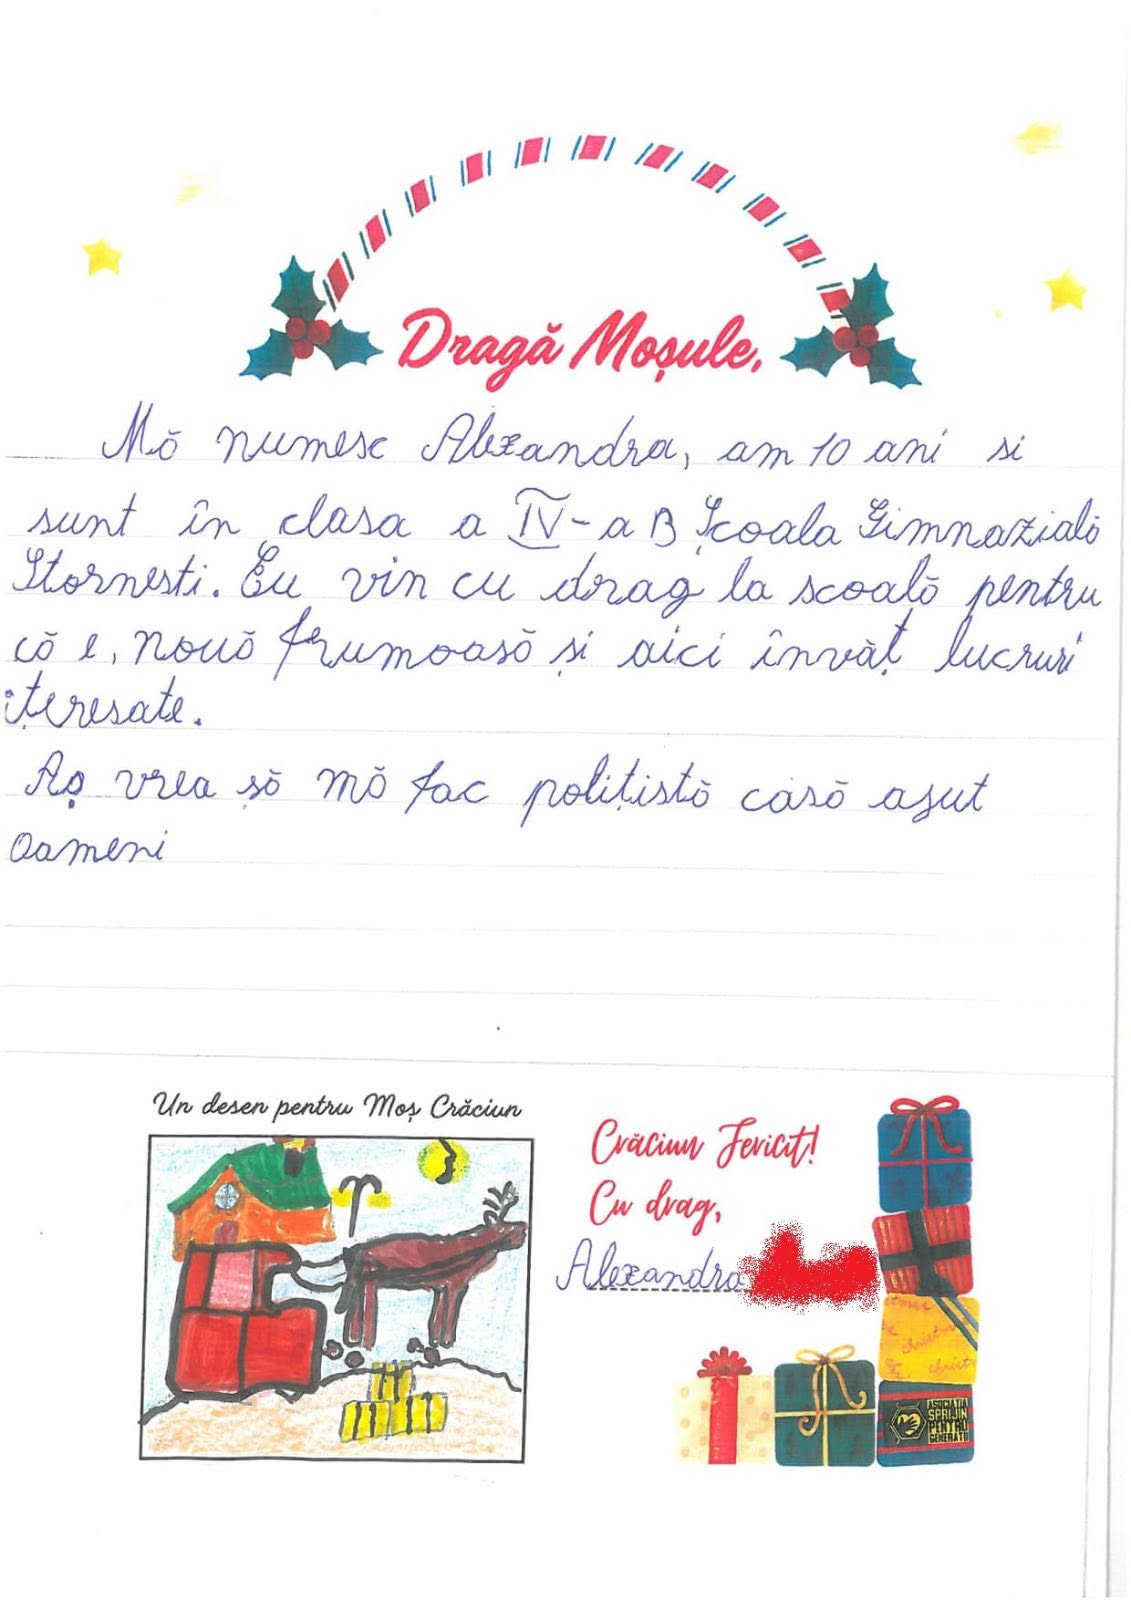 Dragă Moșule,
Mă numesc Alexandra, am 10 ani si
sunt în clasa a IV-a B Școala Gimnazială
Stornesti. Eu vin cu drag la scoală pentru
că e, nouă frumoasă și aici învăț lucruri
ițeresate.
Aș vrea să mă fac polițistă casă ajut
Oameni
Un desen pentru Moș Crăciun
Crăciun Fericit!
Cu drag,
Alexandra
christ
christ
ASOCIAȚIA
SPRIJIN
PENTRU
GENERAȚII